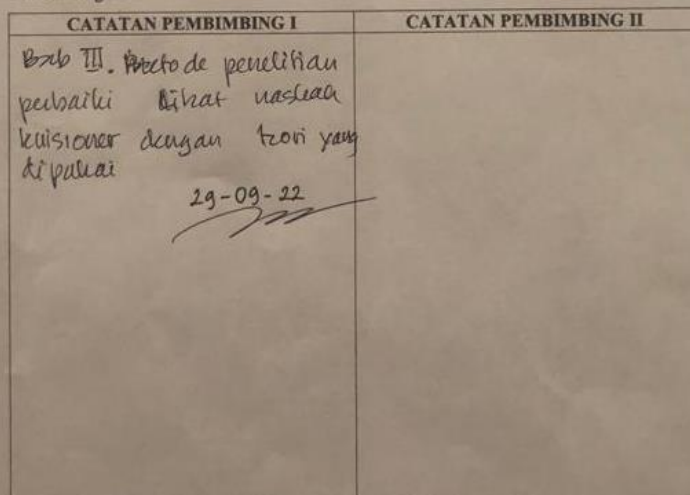 CATATAN PEMBIMBING I
CATATAN PEMBIMBING II
Bab III. Metode penelitian
perbaiki lihat naskah
kuisioner dengan teori yang
dipakai
29-09-22